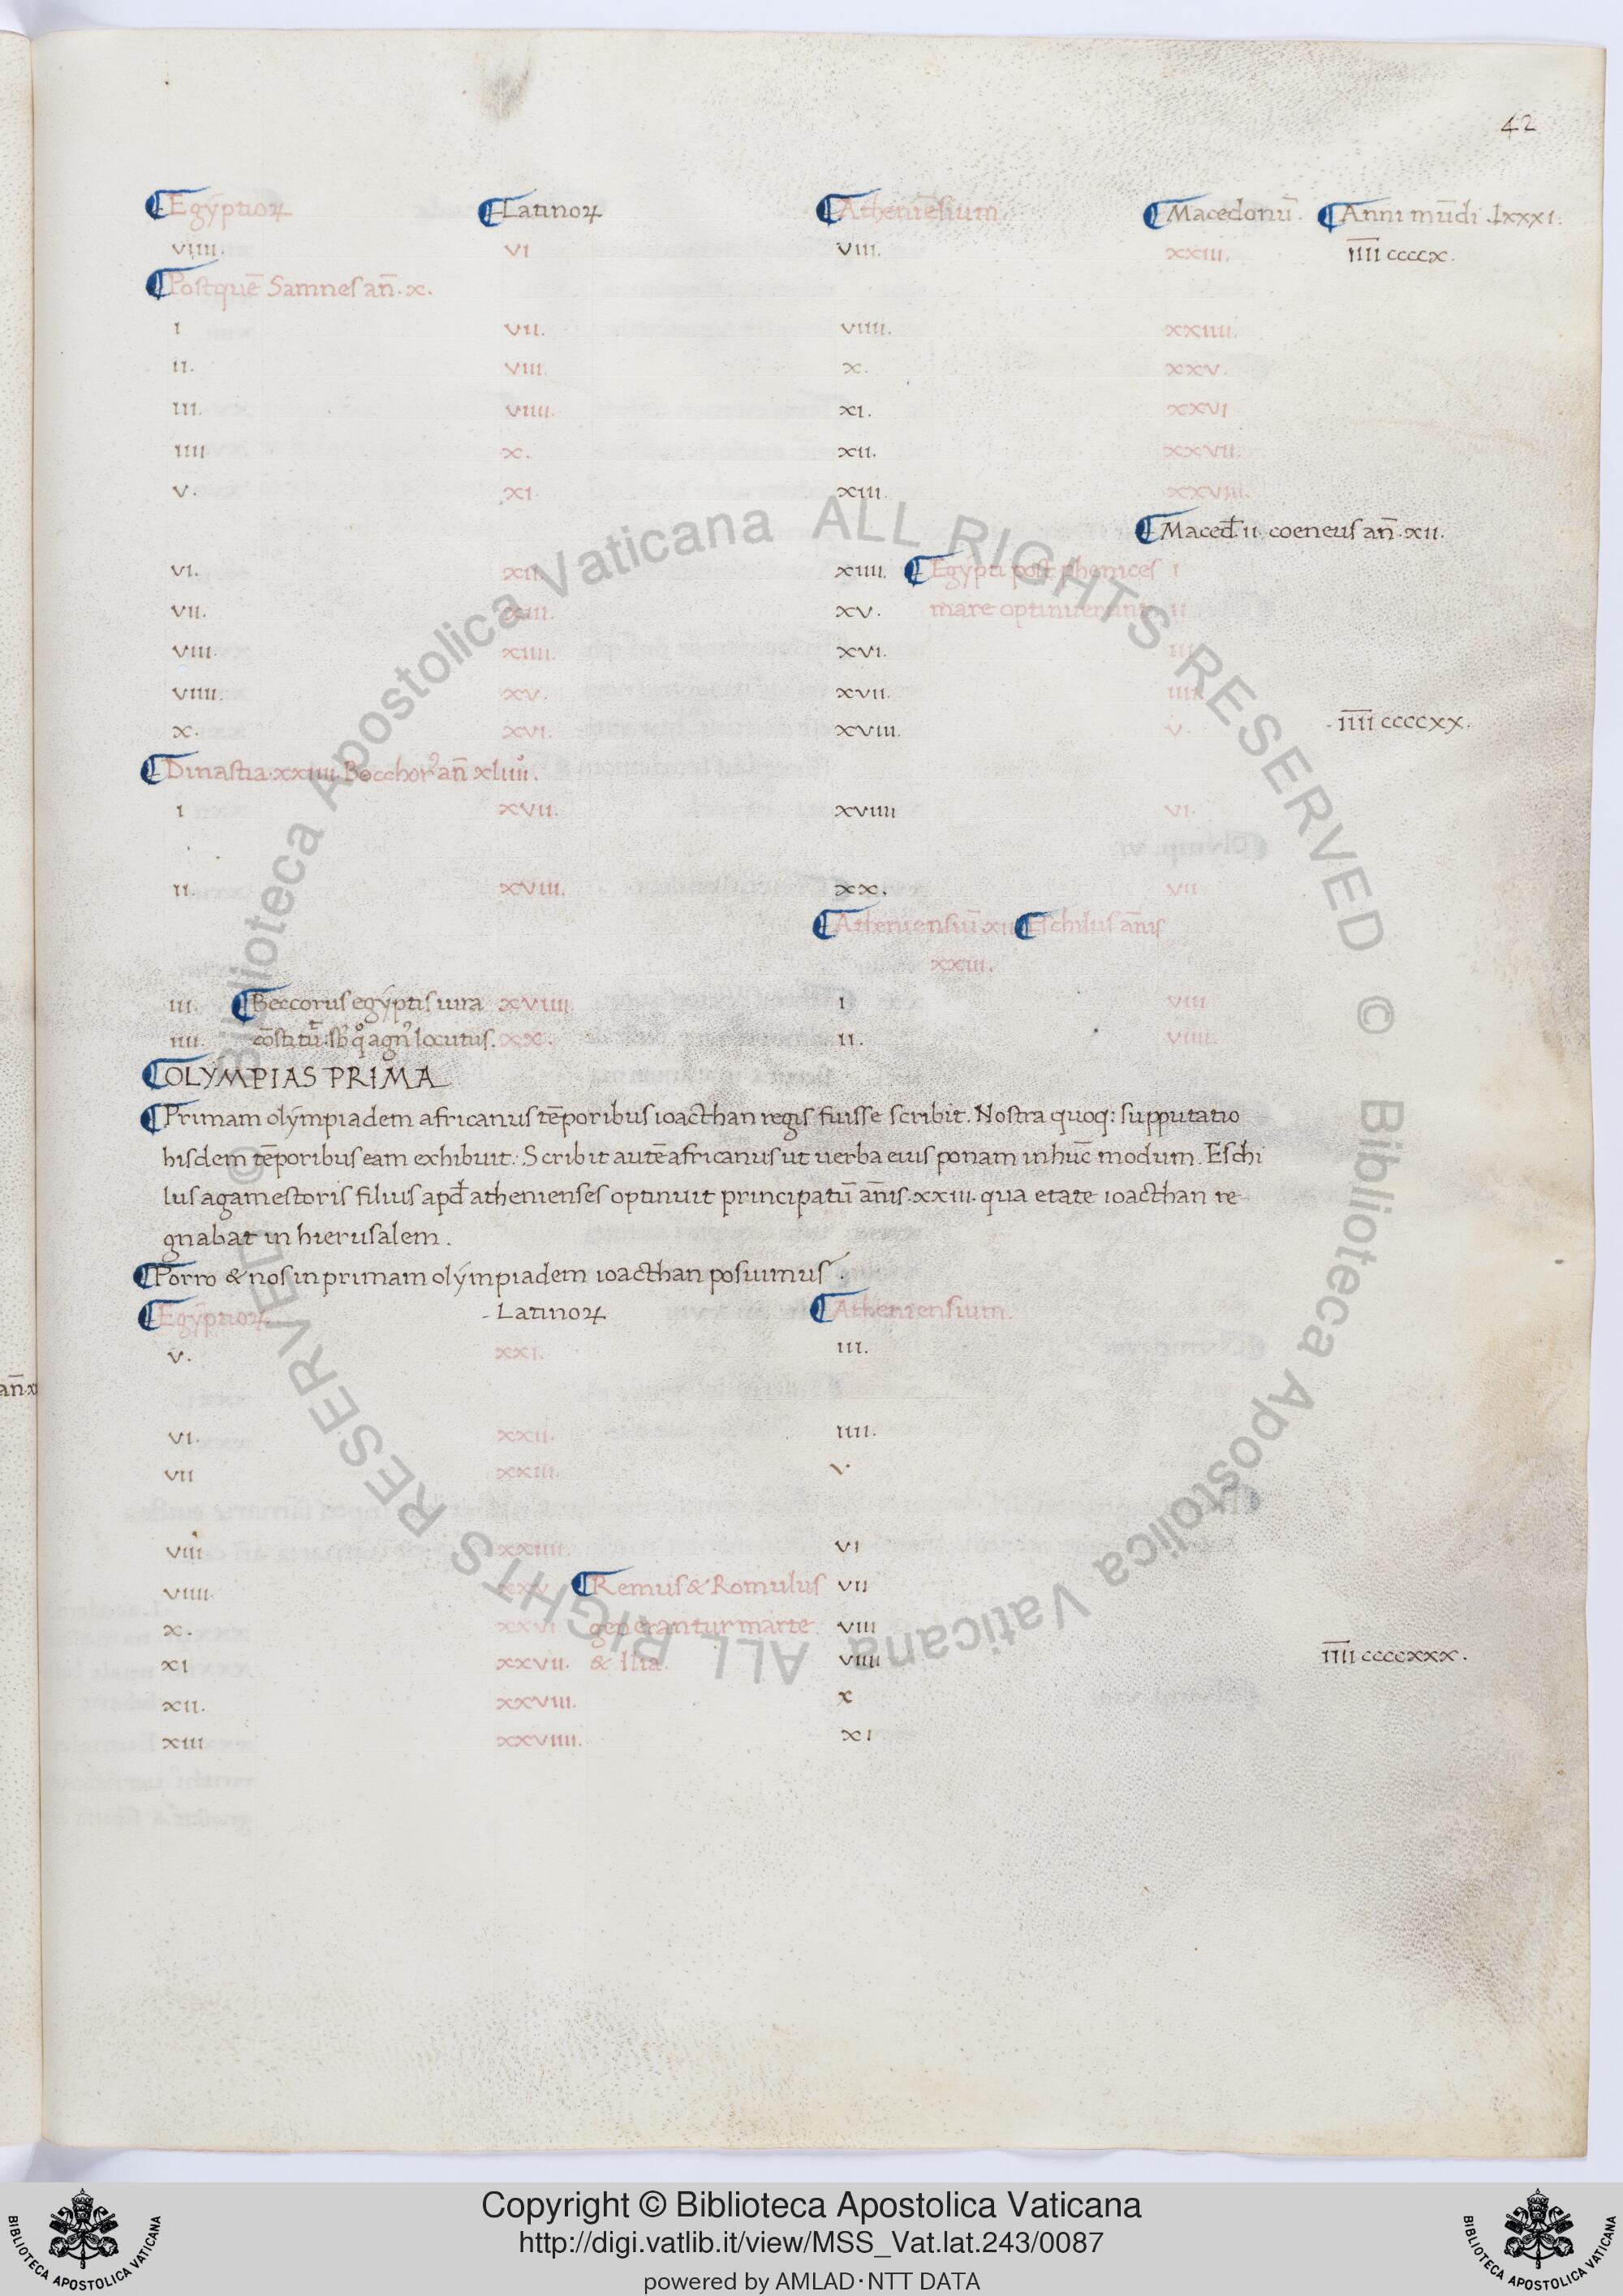 42
Egyptioꝝ Latinoꝝ Atheniēsium. Macedonū. Anni mūdi .lxxxi.
viiii. vi viii. xxiii. i̅i̅i̅i̅ ccccx.
Postquē Samnes an̄. x.
i vii. viiii. xxiiii.
ii. viii. x. xxv.
iii. viiii. xi. xxvi
iiii x. xii. xxvii.
v. xi. xiii. xxviii.
Maced. ii. coeneus an̄. xii.
vi. xii. xiiii. Egypti post phenices i
vii. xiii. xv. mare optinuerunt ii
viii. xiiii. xvi. iii
viiii. xv. xvii. iiii
x. xvi. xviii. v. i̅i̅i̅i̅ ccccxx.
Dinastia. xxiiii. Bocchorꝰ an̄ xliiii.
i xvii. xviiii vi.
ii. xviii. xx. vii
Atheniensiū xii Eschilus an̄is
xxiii.
iii. Beccorus egyptis iura xviiii. i viii
iiii. agnꝰ locutus. xx. ii. viiii.
OLYMPIAS PRIMA
Primam olympiadem africanus tēporibus ioacthan regis fuisse scribit. Nostra quoq: supputatio
hisdem tēporibus eam exhibuit: Scribit autē africanus ut uerba eius ponam in hūc modum. Eschi
lus agamestoris filius apđ athenienses optinuit principatū an̄is. xxiii. qua etate ioacthan re-
gnabat in hierusalem.
Porro & nos in primam olympiadem ioacthan posuimus.
Egyptioꝝ Latinoꝝ Atheniensium.
v. xxi. iii.
vi. xxii. iiii.
vii xxiii. v.
viii xxiiii. vi
viiii. xxv Remus & Romulus vii
x. xxvi generantur marte viii
xi xxvii. & Ilia. viiii i̅i̅i̅i̅ ccccxxx.
xii. xxviii. x
xiii xxviiii. xi
an̄. x
Biblioteca Apostolica Vaticana ALL RIGHTS RESERVED © Biblioteca Apostolica Vaticana ALL RIGHTS RESERVED ©
Copyright © Biblioteca Apostolica Vaticana
http://digi.vatlib.it/view/MSS_Vat.lat.243/0087
powered by AMLAD·NTT DATA
BIBLIOTECA APOSTOLICA VATICANA
BIBLIOTECA APOSTOLICA VATICANA